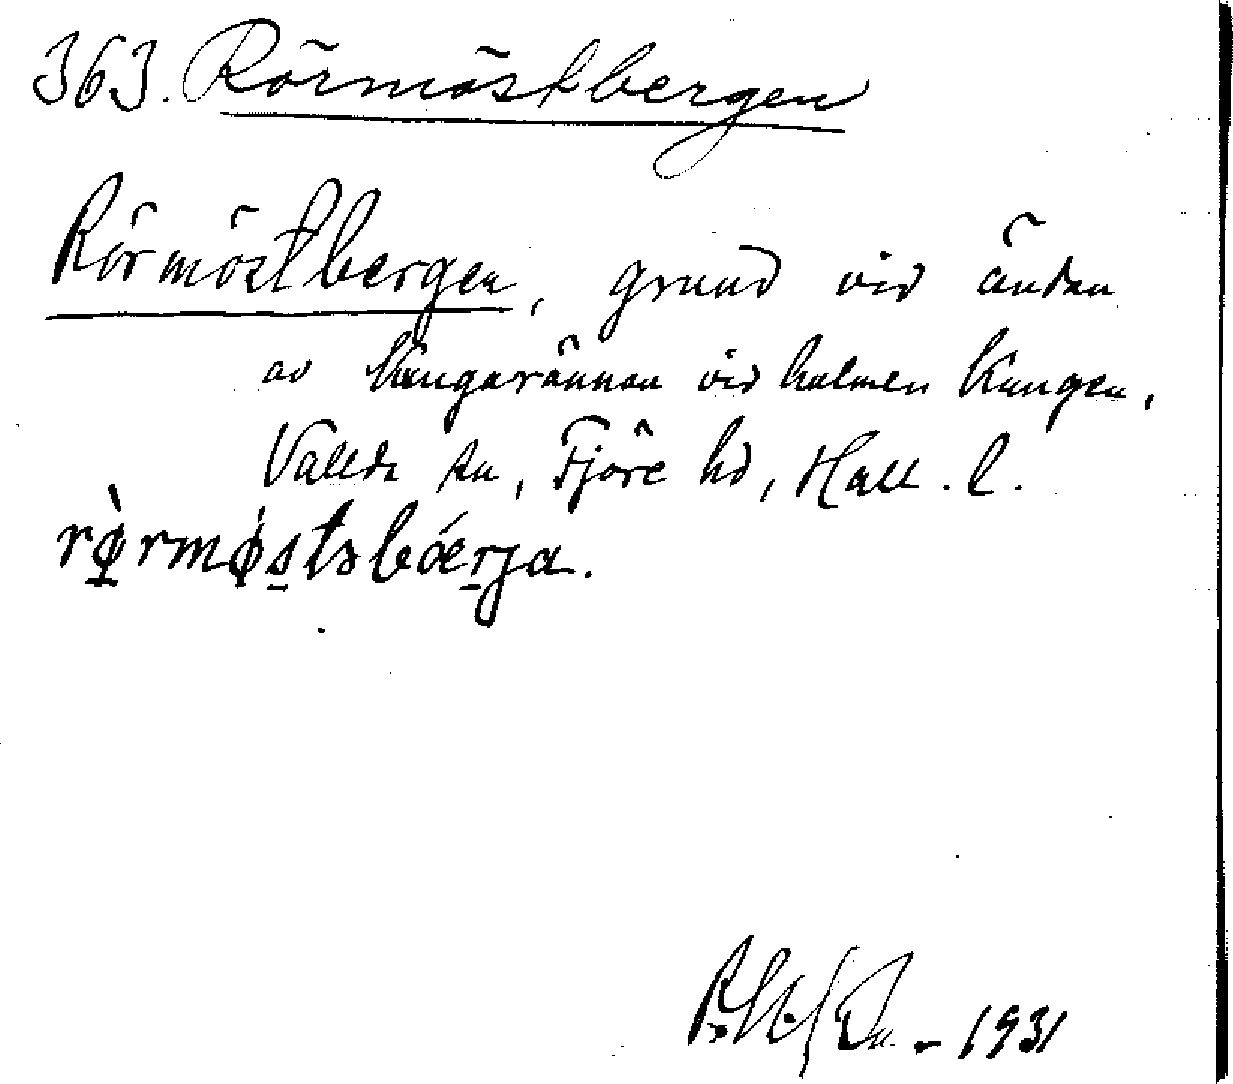 363. Rörmöstbergen
Rörmöstbergen, grund vid ändan
av Kungarännan vid holmen Kungen,
Vallda sn, Fjäre hd, Hall. l.
rø̀rmø̀stsbǽrja.
1931